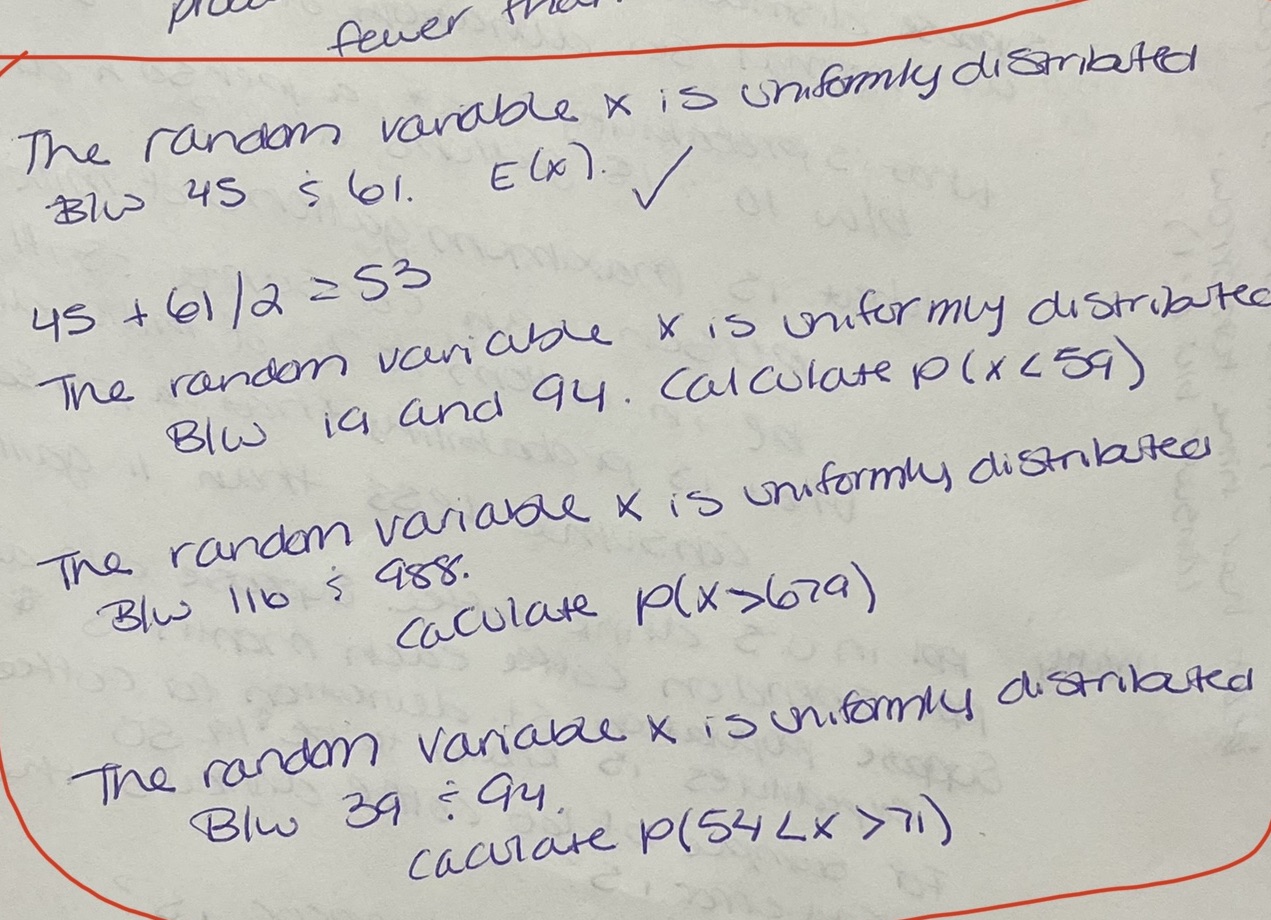 fewer
The random variable x is uniformly distributed
B/w 45 & 61. E(x). ✓
45 + 61/2 = 53
The random variable x is uniformly distributed
B/w 19 and 94. Calculate p(x<59)
The random variable x is uniformly distributed
B/w 116 & 988.
caculate p(x>679)
The random variable x is uniformly distributed
B/w 39 & 94.
caculate p(54<x>71)